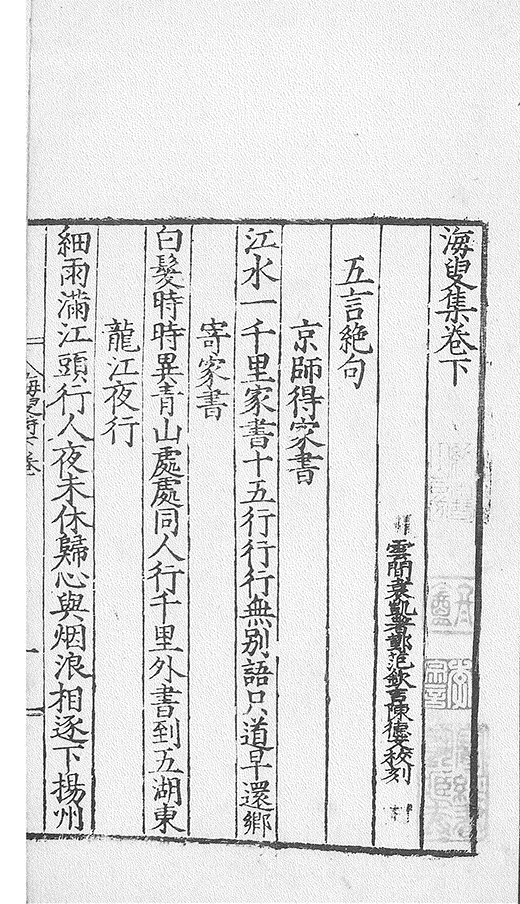 海叟集卷下
雲間袁凱著鄞范欽吉陳德文校刻
五言絶句
京師得家書
江水一千里家書十五行行行無別語只道早還鄉
寄家書
白髮時時異青山處處同人行千里外書到五湖東
龍江夜行
細雨滿江頭行人夜未休歸心與烟浪相逐下揚州